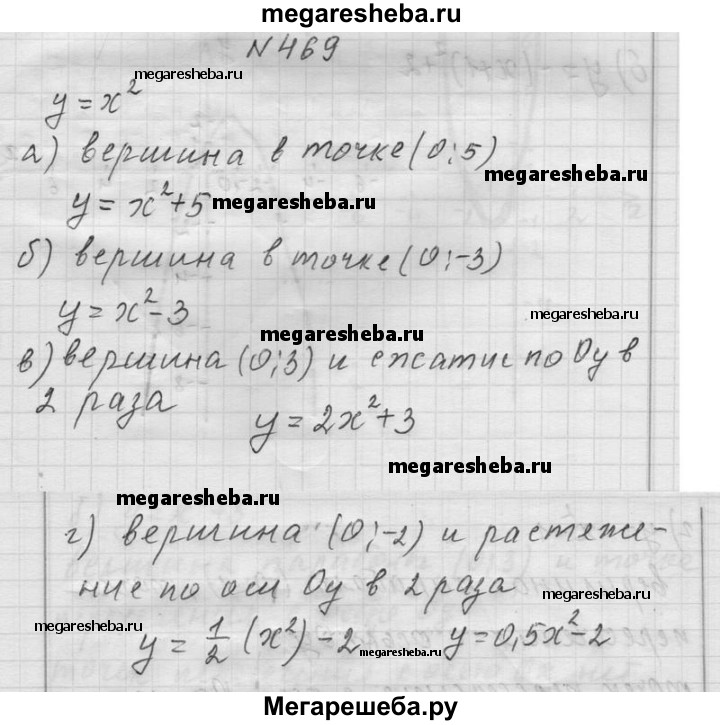 megaresheba.ru
N469
megaresheba.ru
y = x²
а) вершина в точке (0;5)
megaresheba.ru
y = x²+5
megaresheba.ru
б) вершина в точке (0;-3)
megaresheba.ru
y = x²-3
megaresheba.ru
в) вершина (0;3) и сжатие по Oy в
2 раза
y = 2x²+3
megaresheba.ru
megaresheba.ru
г) вершина (0;-2) и растяже-
ние по оси Oy в 2 раза
megaresheba.ru
megaresheba.ru
y = 1/2 (x²) - 2 y = 0,5x²-2
megaresheba.ru
Мегарешеба.ру